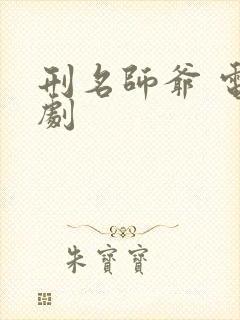 刑名師爺 電
劇
朱寶寶